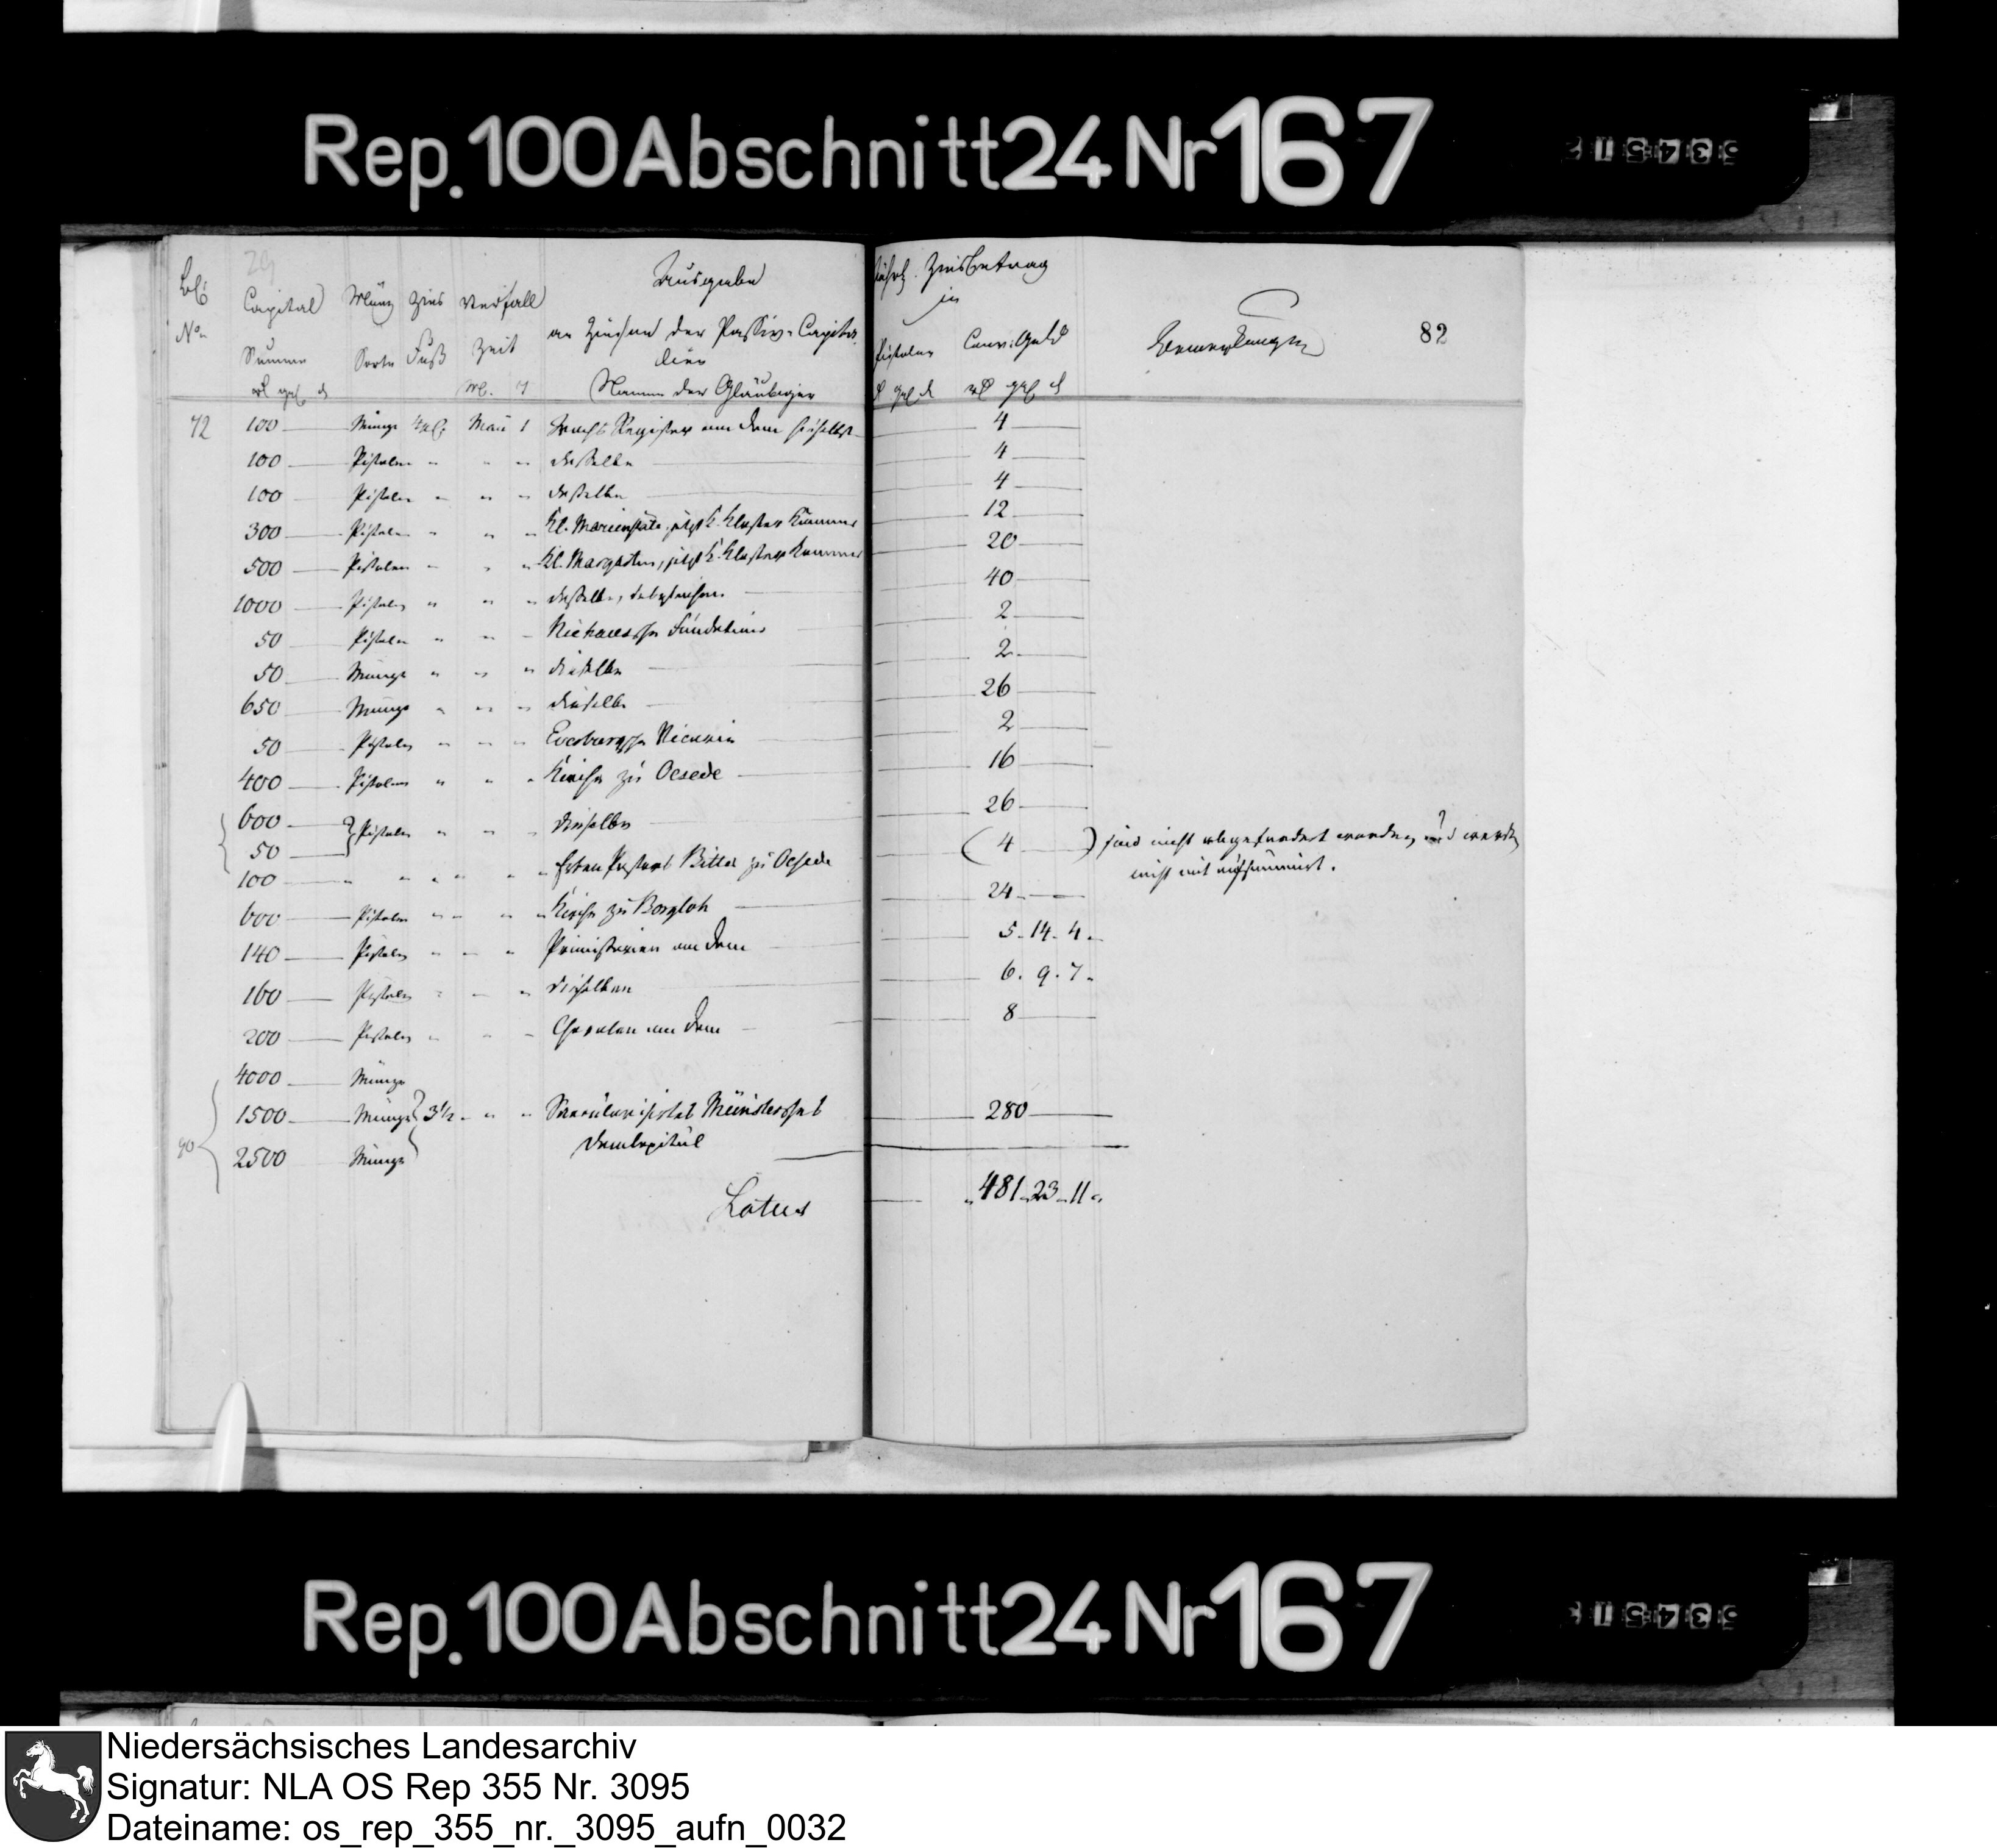 Rep. 100 Abschnitt 24 Nr 167
53451
82
Ausgabe
an Zinsen der Passiv-Capita-
lien
Namen der Gläubiger
No
Capital
Summe
Münz
Sorte
Zins
Fuß
Verfall
Zeit
M. T
jährl. Zinsbetrag
in
Pistolen
Conv: Geld
Bemerkungen
72 100 Münze Mai 1 Register 4
100 Pistolen " " " dasselbe 4
100 Pistolen " " " dasselbe 4
300 Pistolen " " " Kl. Marienstäte, jetzt K. Kloster Kammer 12
500 Pistolen " " " Kl. jetzt K. Kloster Kammer 20
1000 Pistolen " " " 40
50 Pistolen " " " Fundation 2
50 Münze " " " dieselbe 2
650 Münze " " " dieselbe 26
50 Pistolen " " " Vicarie 2
400 Pistolen " " " Kirche zu Oesede 16
600
50 Pistolen " " " dieselbe 26
100 " " " " " Erben Pastors zu Oesede (4) sind nicht abgefordert worden, und werden
nicht mit aufsummirt.
600 Pistolen " " " " Kirche zu Borgloh 24
140 Pistolen " " " am Dom 5 14 4
160 Pistolen " " " dieselben 6 9 7
200 Pistolen " " " am Dom 8
4000 Münze
1500 Münze 3 1/2 " " " Saecularisirtes Münstersches 280
90 2500 Münze Domkapitul
Latus 481 23 11
Rep. 100 Abschnitt 24 Nr 167
53451
Niedersächsisches Landesarchiv
Signatur: NLA OS Rep 355 Nr. 3095
Dateiname: os_rep_355_nr._3095_aufn_0032